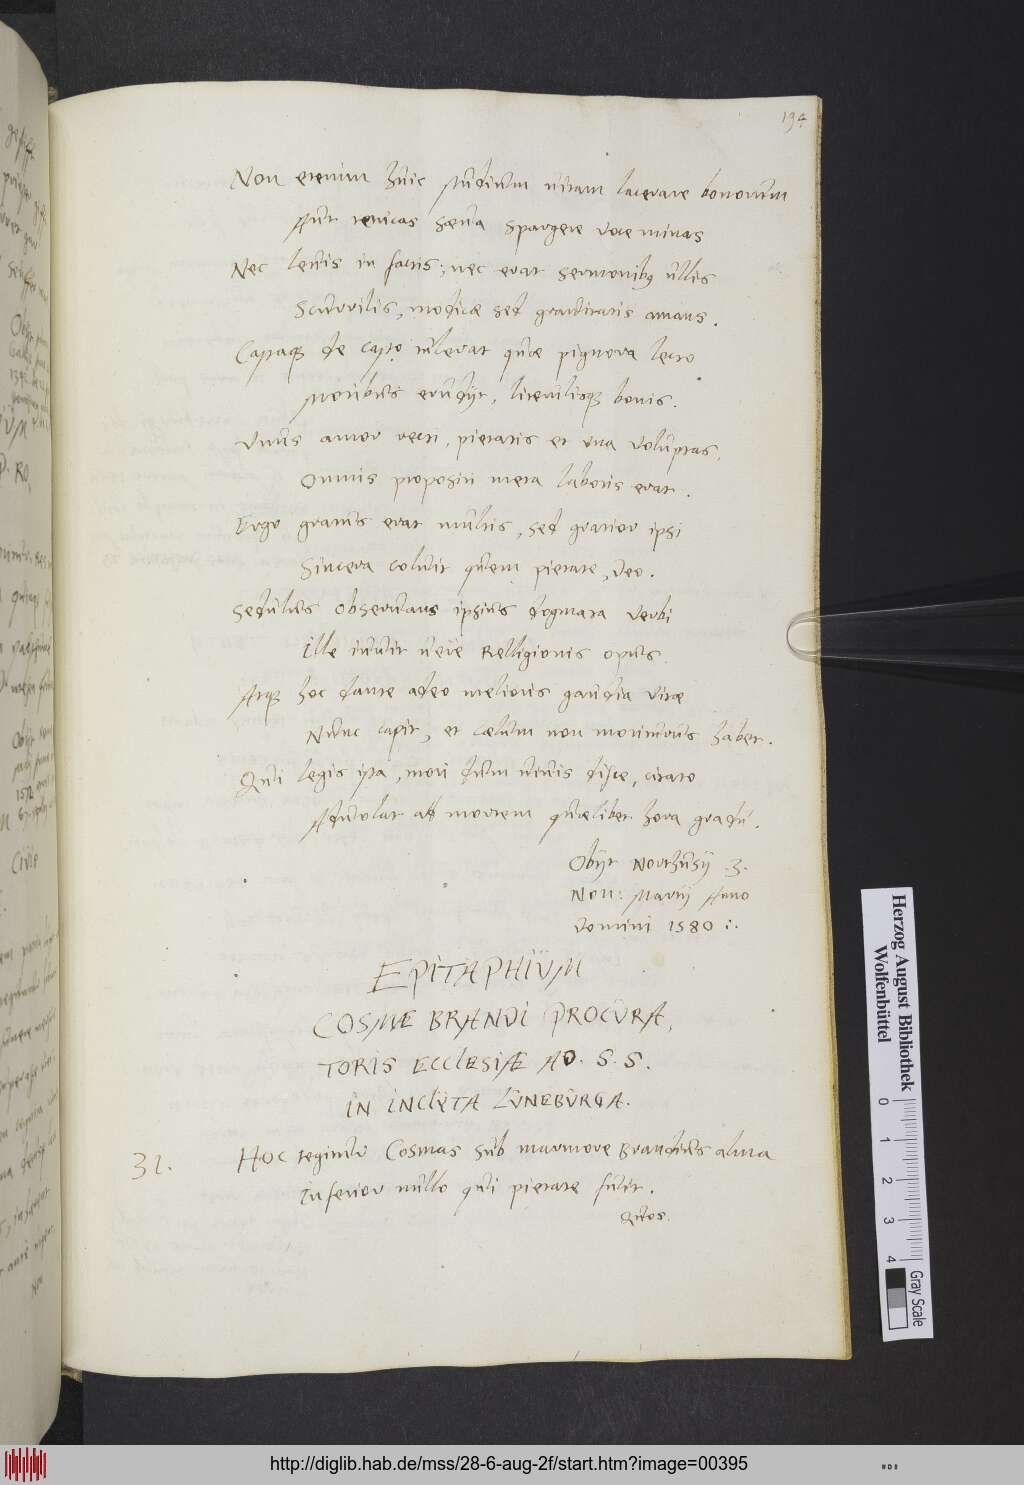 194
Non etenim huic studium vitam lacerare bonorum
Aut tetricas sæva spargere voce minas
Nec levis in factis; nec erat sermonibꝫ ullis
Scurrilis, modicæ sed gravitatis amans.
Castaqꝫ de casto tulerat quæ pignora lecto
Moribus erudÿt, literulisqꝫ bonis.
Unus amor recti, pietatis et una voluptas,
Omnis propositi meta laboris erat.
Ergo gratus erat multis, sed gratior ipsi
Sincera coluit quem pietate, Deo.
Sedulus observans ipsius dogmata verbi
Ille iuvit veræ Relligionis opus.
Atqꝫ hoc dante adeo melioris gaudia vitæ
Nunc capit, et cælum non moriturus habet.
Qui legis ista, mori dum vivis disce, citato
Advolat ad mortem quælibet hora gradu.
Obÿt Northusÿ .3.
Non: Martÿ Anno
Domini 1580 :.
EPITAPHIUM
COSMÆ BRANDI PROCURA,
TORIS ECCLESIÆ AD. S. S.
IN INCLYTA LUNEBURGA.
32. Hoc tegitur Cosmas sub marmore Brandius alma
Inferior nullo qui pietate fuit.
Quos.
Herzog August Bibliothek
Wolfenbüttel
0 1 2 3 4
Gray Scale
http://diglib.hab.de/mss/28-6-aug-2f/start.htm?image=00395